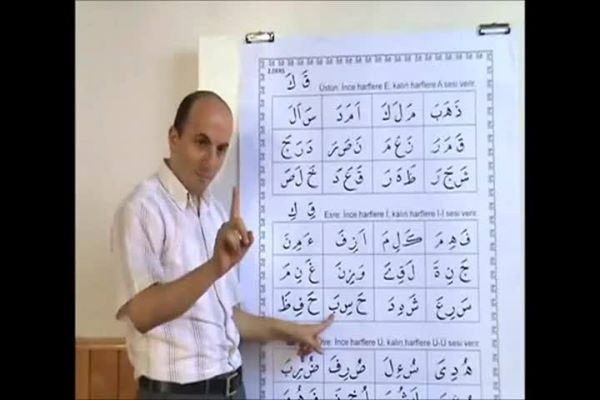 2.DERS
قَ كَ
Üstün: İnce harflere E, kalın harflere A sesi verir.
ذَهَبَ مَلَكَ اَمَرَ سَاَلَ
قَمَرَ زَعَمَ نَصَرَ دَرَجَ
شَجَرَ ظَهَرَ قَعَدَ خَلَصَ
قِ كِ
Esre: İnce harflere İ, kalın harflere I-İ sesi verir.
فَهِمَ كَلِمَ اَزِفَ
جَنِةَ لَقِىَ وَزِنَ غَنِمَ
سَرِعَ شَهِدَ حَسِبَ حَفِظَ
İnce harflere Ü, kalın harflere U-Ü sesi verir.
هُدِىَ سُءِلَ صُرِفَ ضُرِبَ